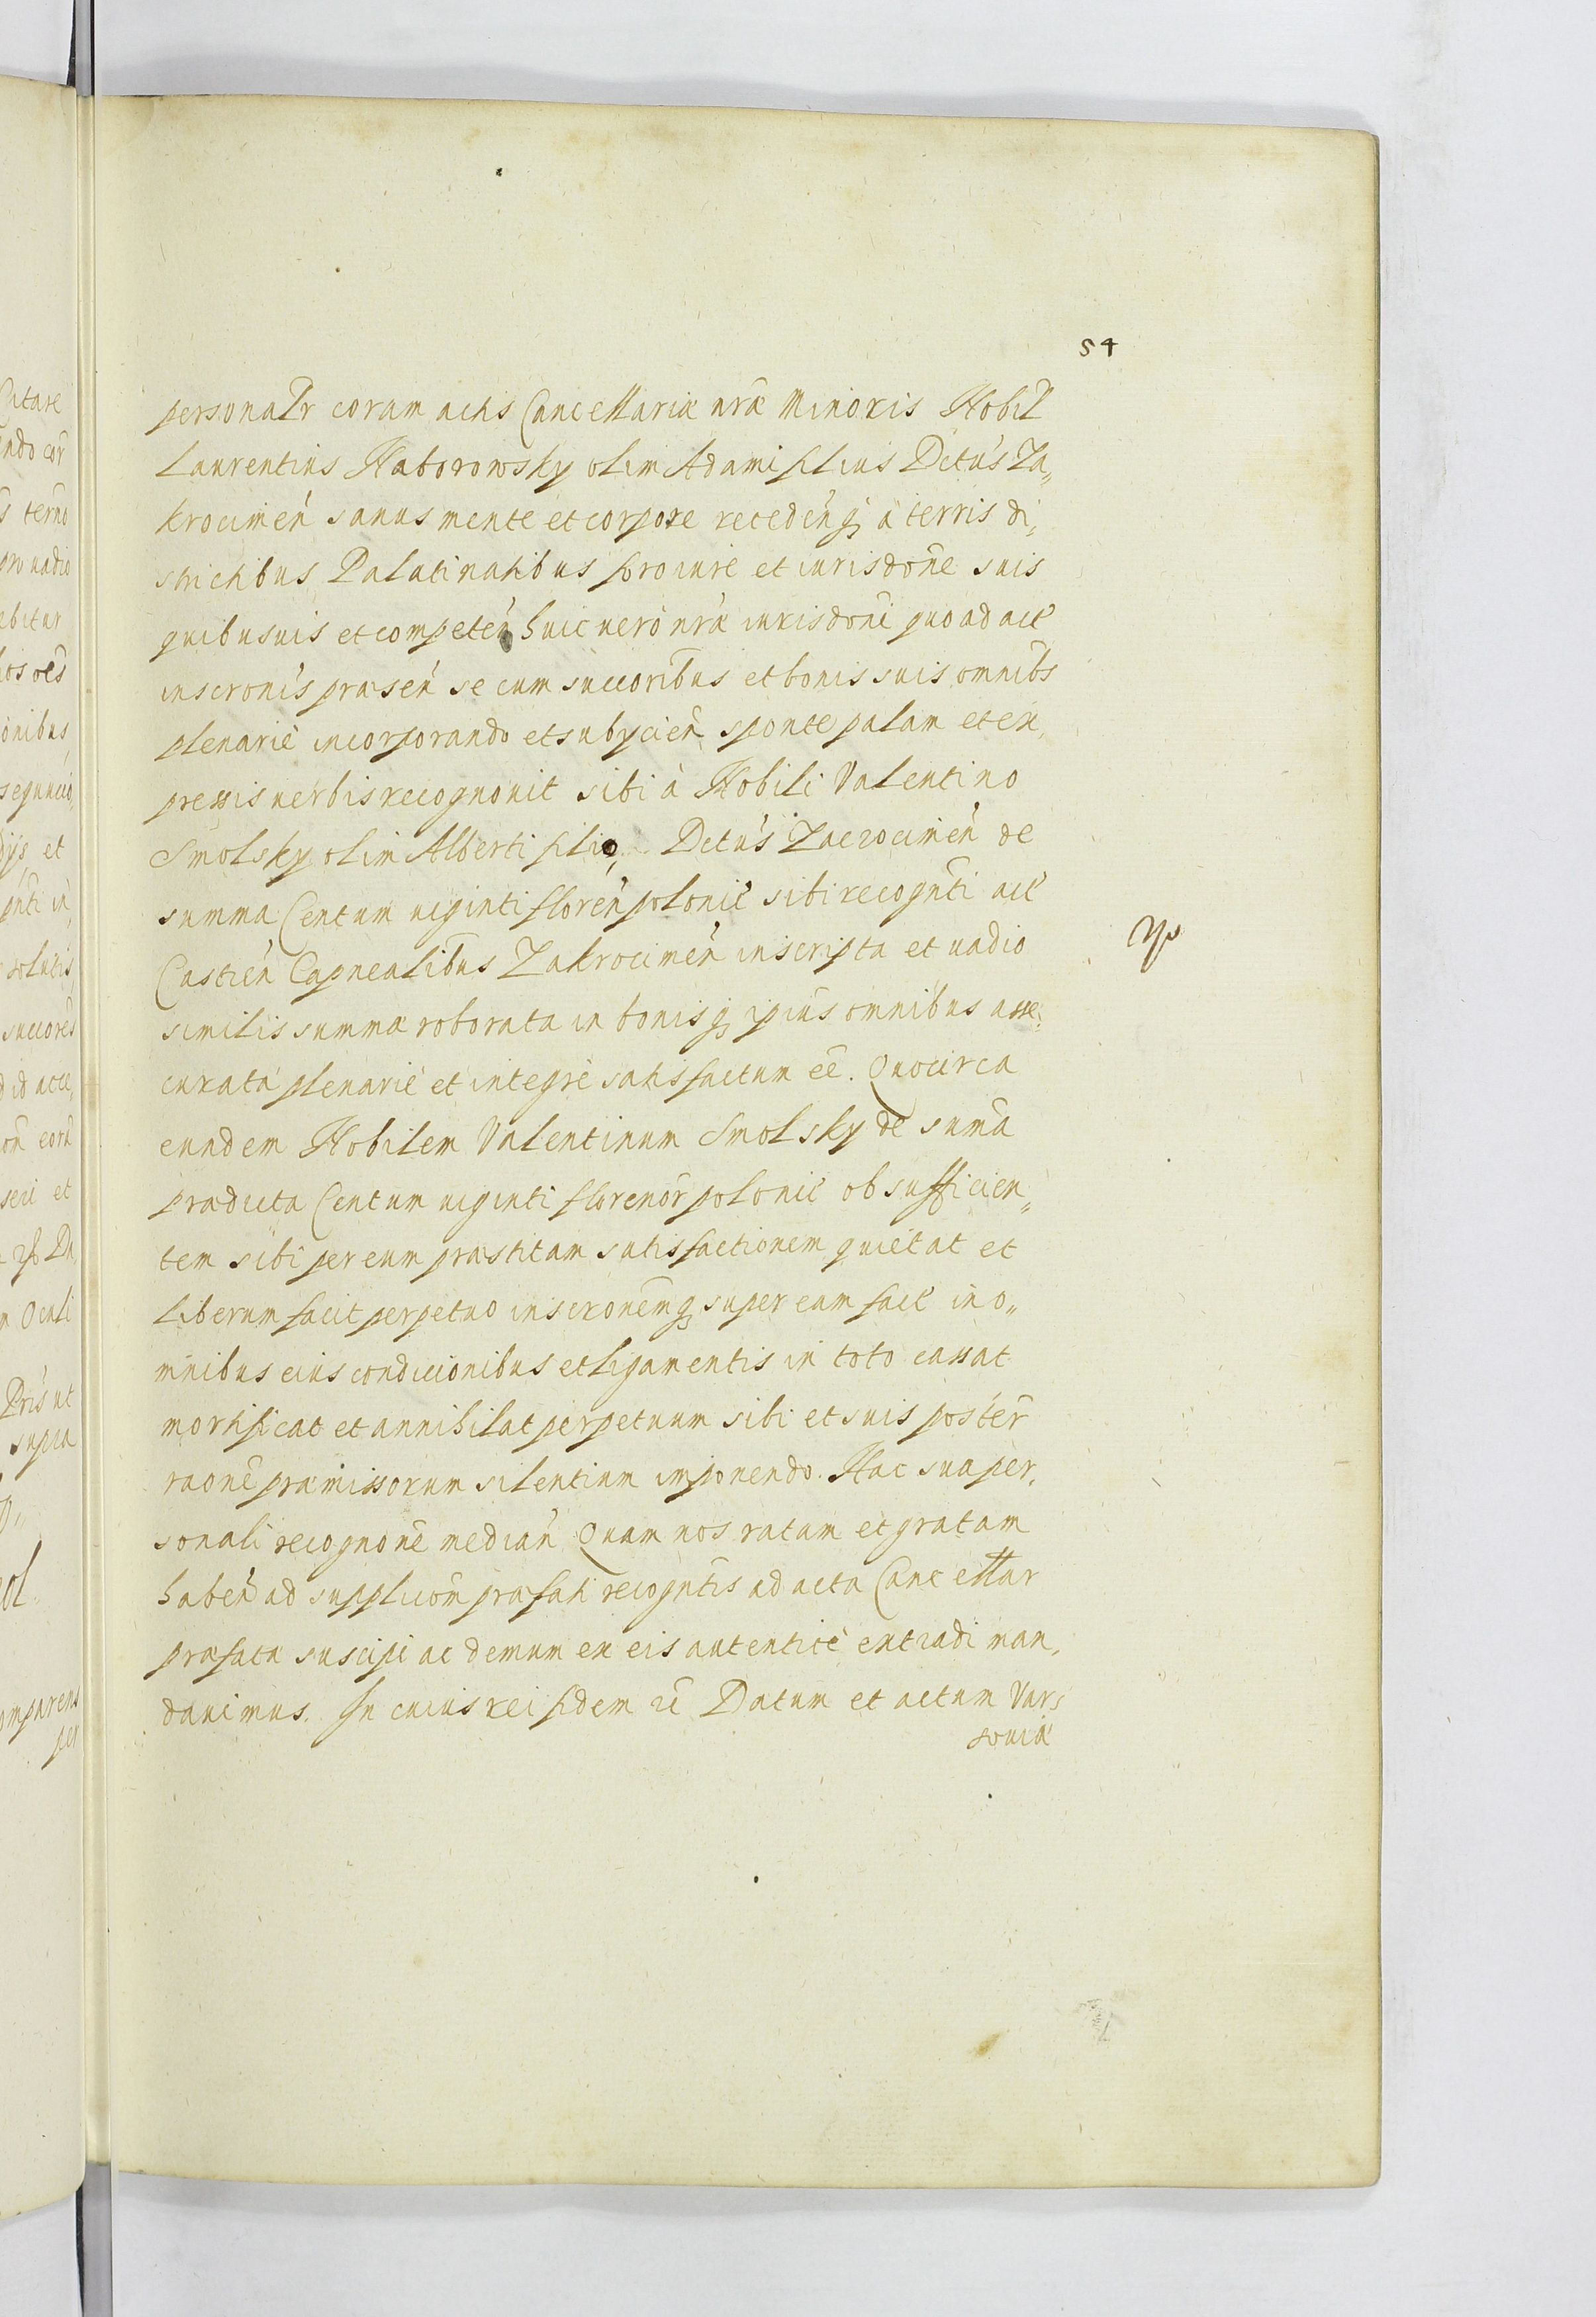 54
personalr coram actis Cancellariæ nræ Minoris Nobil
Laurentius Naborowsky olim Adami filius Dctus Za„
krocimen sanus mente et corpore recedenq à terris di„
strictibus Palatinatibus foro iure et iurisdone suis
quibusuis et competen huic uerò nræ iurisdoni quo ad act
inscronis præsen se cum succoribus et bonis suis omnibs
plenariè incorporando et subycien sponte palam et ex„
pressis uerbis recognouit sibi à Nobili Valentino
Smolsky olim Alberti filio, Dctus Zacrocimen de
summa Centum uiginti floren polonic sibi recognti act
Castren Capnealibus Zakrocimen inscripta et uadio
similis summæ roborata in bonisq ipius omnibus asse„
curata plenariè et integrè satisfactum ee. Quocirca
eundem Nobilem Valentinum Smolsky de suma
prædicta Centum uiginti florenor polonic ob sufficien„
tem sibi per eum præstitam satisfactionem quietat et
liberum facit perpetuo inscronemq super eam fact in o„
mnibus eius condicionibus et ligamentis in toto cassat
mortificat et annihilat perpetuum sibi et suis poster
raone præmissorum silentium imponendo. Hac sua per„
sonali recognone median Quam nos ratam et gratam
haben ad supplicom præfati recogntis ad acta Cancellar
præfata suscipi ac demum ex eis autenticè extradi man„
dauimus. In cuius rei fidem rc Datum et actum Var„
souiæ